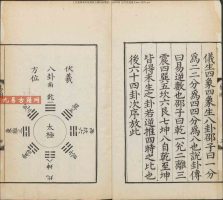 儀生四象四象生八卦邵子曰一分
為二二分為四四分為八也說卦傳
曰易逆數也邵子曰乾一兌二離三
震四巽五坎六艮七坤八自乾至坤
皆得未生之卦若逆推四時之比也
後六十四卦次序放此
伏羲
八卦
方位
南
乾
太極
坤